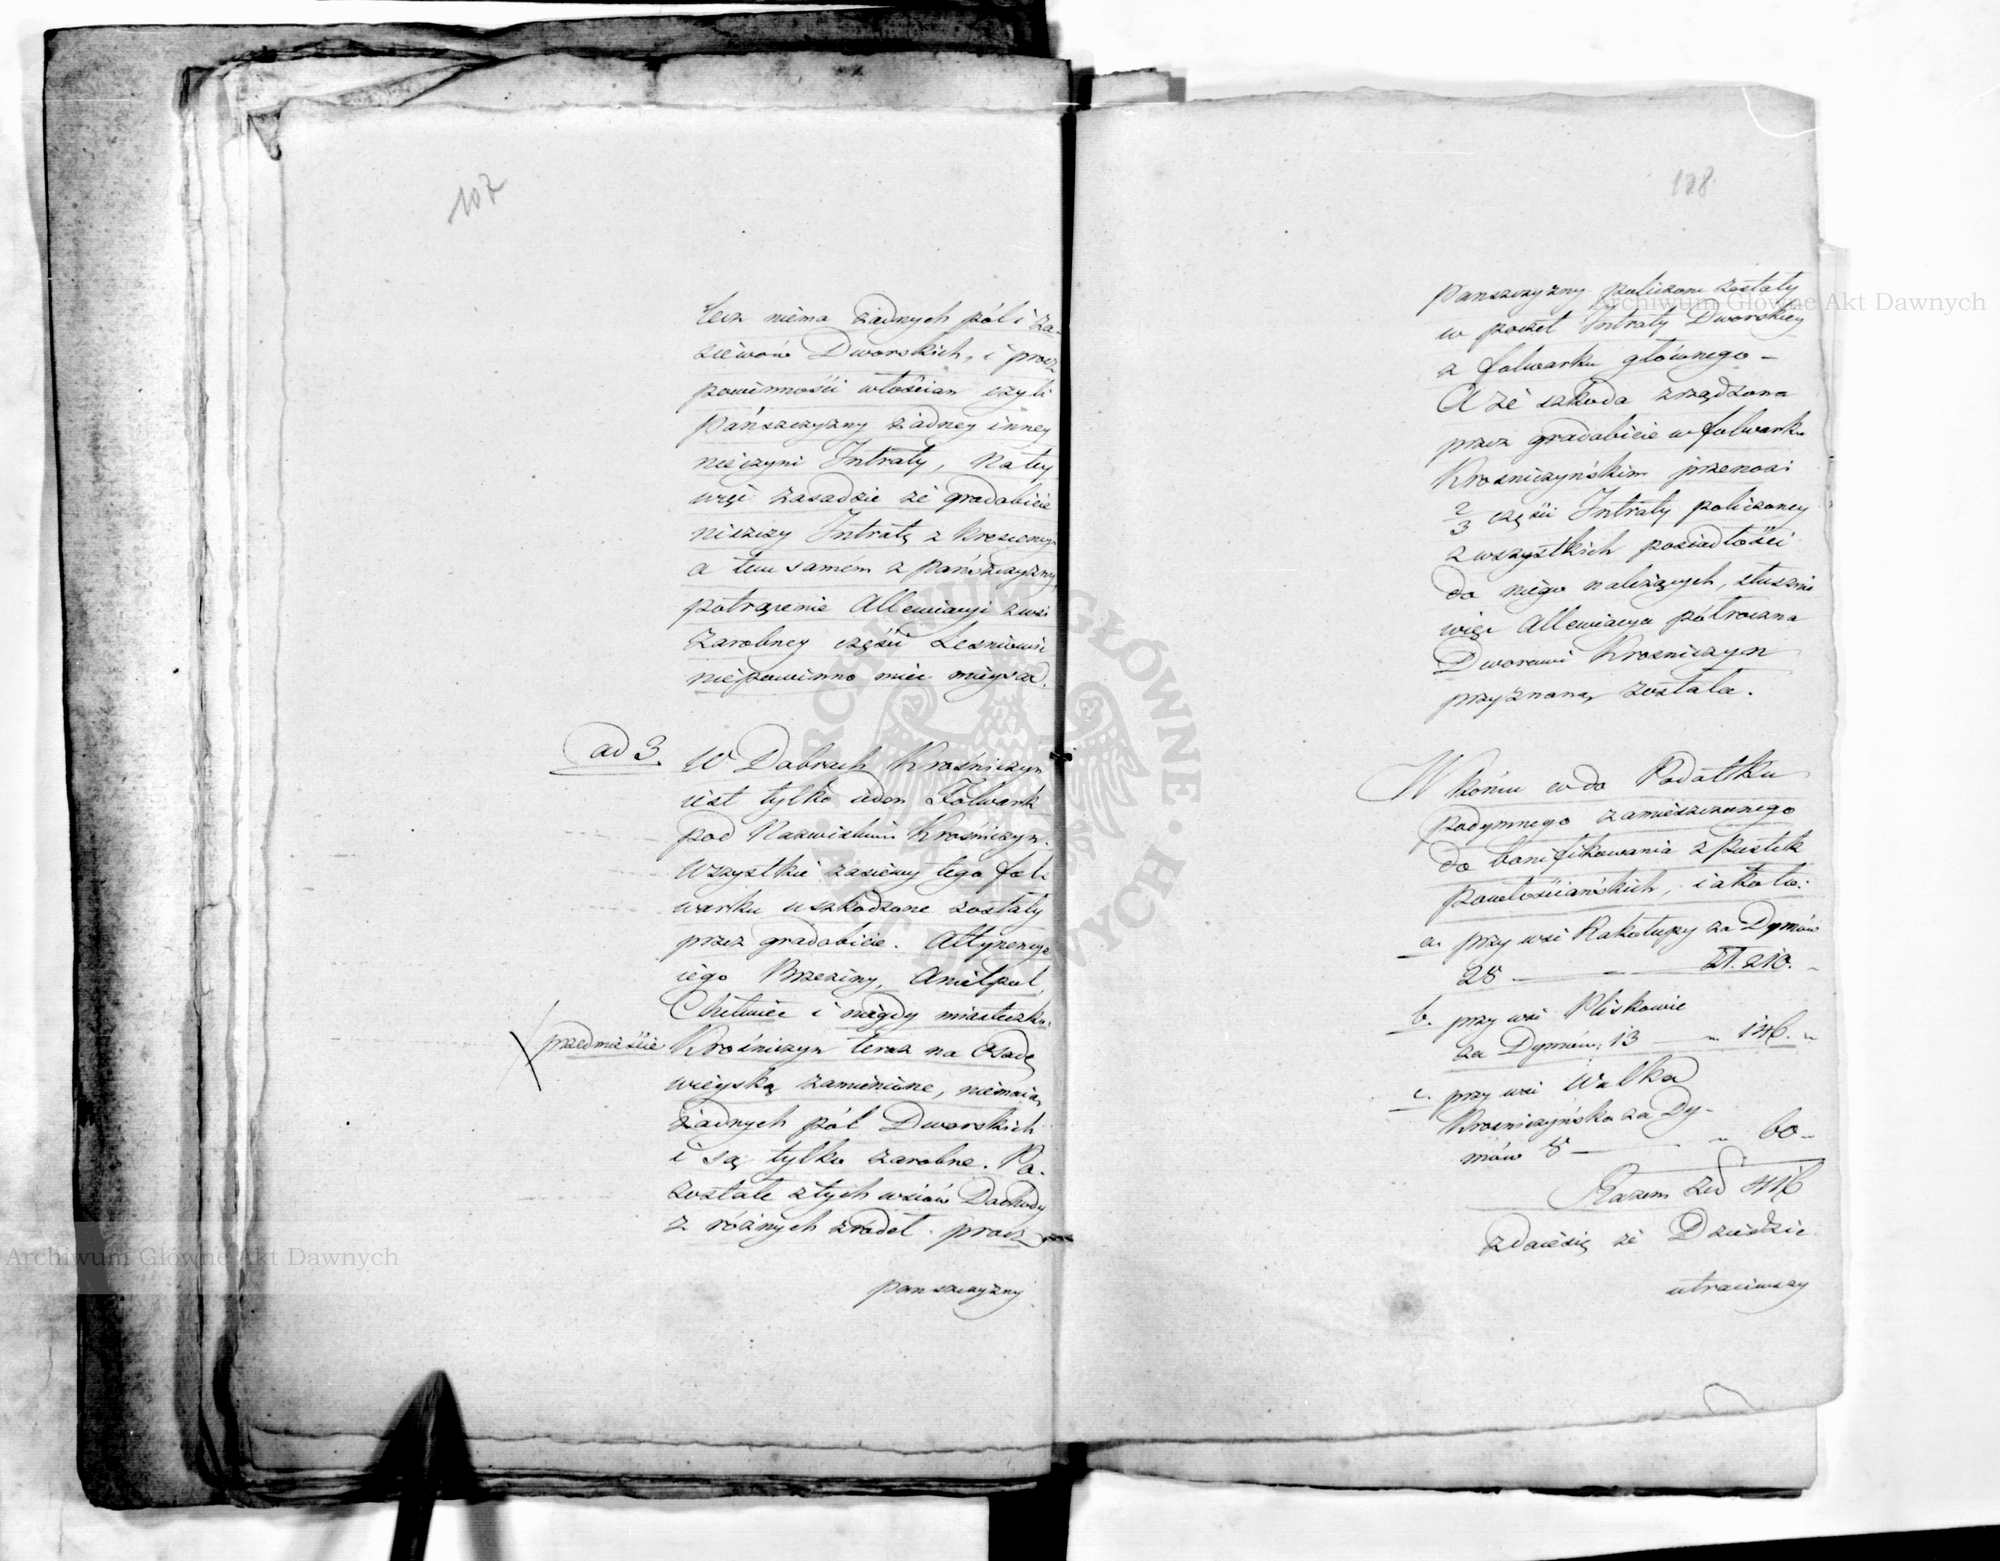 107
lecz niéma żadnych pól i za-
siewów Dworskich, i procz
powinnośći włościan czyli
Pańszczyzny żadney inney
nieczyni Intraty, Na tey
więc zasadzie że gradobicie
niszczy Intratę z Krescencyi
a tem samém z pańszczyzny
potrącenie Allewiacyi z wsi
Zarobney częśći Lesniowic
niepowinno mieć mieysca.
ad 3. W Dobrach Krośniczyn
iest tylko ieden Folwark
pod Nazwiskiem Krośniczyn.
Wszystkie zasiewy tego fol
warku uszkodzone zostały
przez gradobicie. Attynencye
iego Brzeziny, Anielpol,
Chełmiec i niegdy miasteczko
przedmieśćie Krośniczyn teraz na Osadę
wieyską zamienione, niemaią
żadnych pól Dworskich
i są tylko zarobne. Po-
zostałe z tych wsiów Dochody
z różnych źrodeł procz
panszczyzny
108
Panszczyzny policzone zostały
w poczet Intraty Dworskiey
z folwarku głównego –
A że szkoda zrządzona
przez gradobicie w folwarku
Krosniczyńskim przenosi
2/3 częśći Intraty policzoney
z wszystkich posiadłośći
do niego należących, słusznie
więc Allewiacya potrocona
Dworowi Krosniczyn
przyznaną została.
W końcu co do Podatku
podymnego zamieszczonego
do bonifikowania z pustek
powłośćiańskich, iako to:
a. przy wsi Rakołupy za Dymów
28 — — — zł. 210. „
b. przy wsi Pliskowie
za Dymów 13 — „ 146. „
c. przy wsi Wolka
Krosniczyńska za Dy-
mów 8 — — „ 60 „
Razem Złł 416
zdaiesię że Dziedzic
utraciwszy
Archiwum Główne Akt Dawnych
Archiwum Główne Akt Dawnych
ARCHIWUM GŁÓWNE AKT DAWNYCH